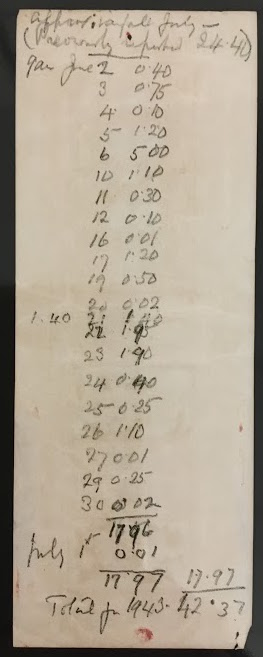 approx. rainfall July —
(Previously reported 24.40)
9am June 2 0.40
3 0.75
4 0.10
5 1.20
6 5.00
10 1.10
11 0.30
12 0.10
16 0.01
17 1.20
19 0.50
20 0.02
1.40 21 1.40
22
23 1.90
24 0.40
25 0.25
26 1.10
27 0.01
29 0.25
30 0.02
17.96
July 1st 0.01
17.97 17.97
Total for 1943. 42.37